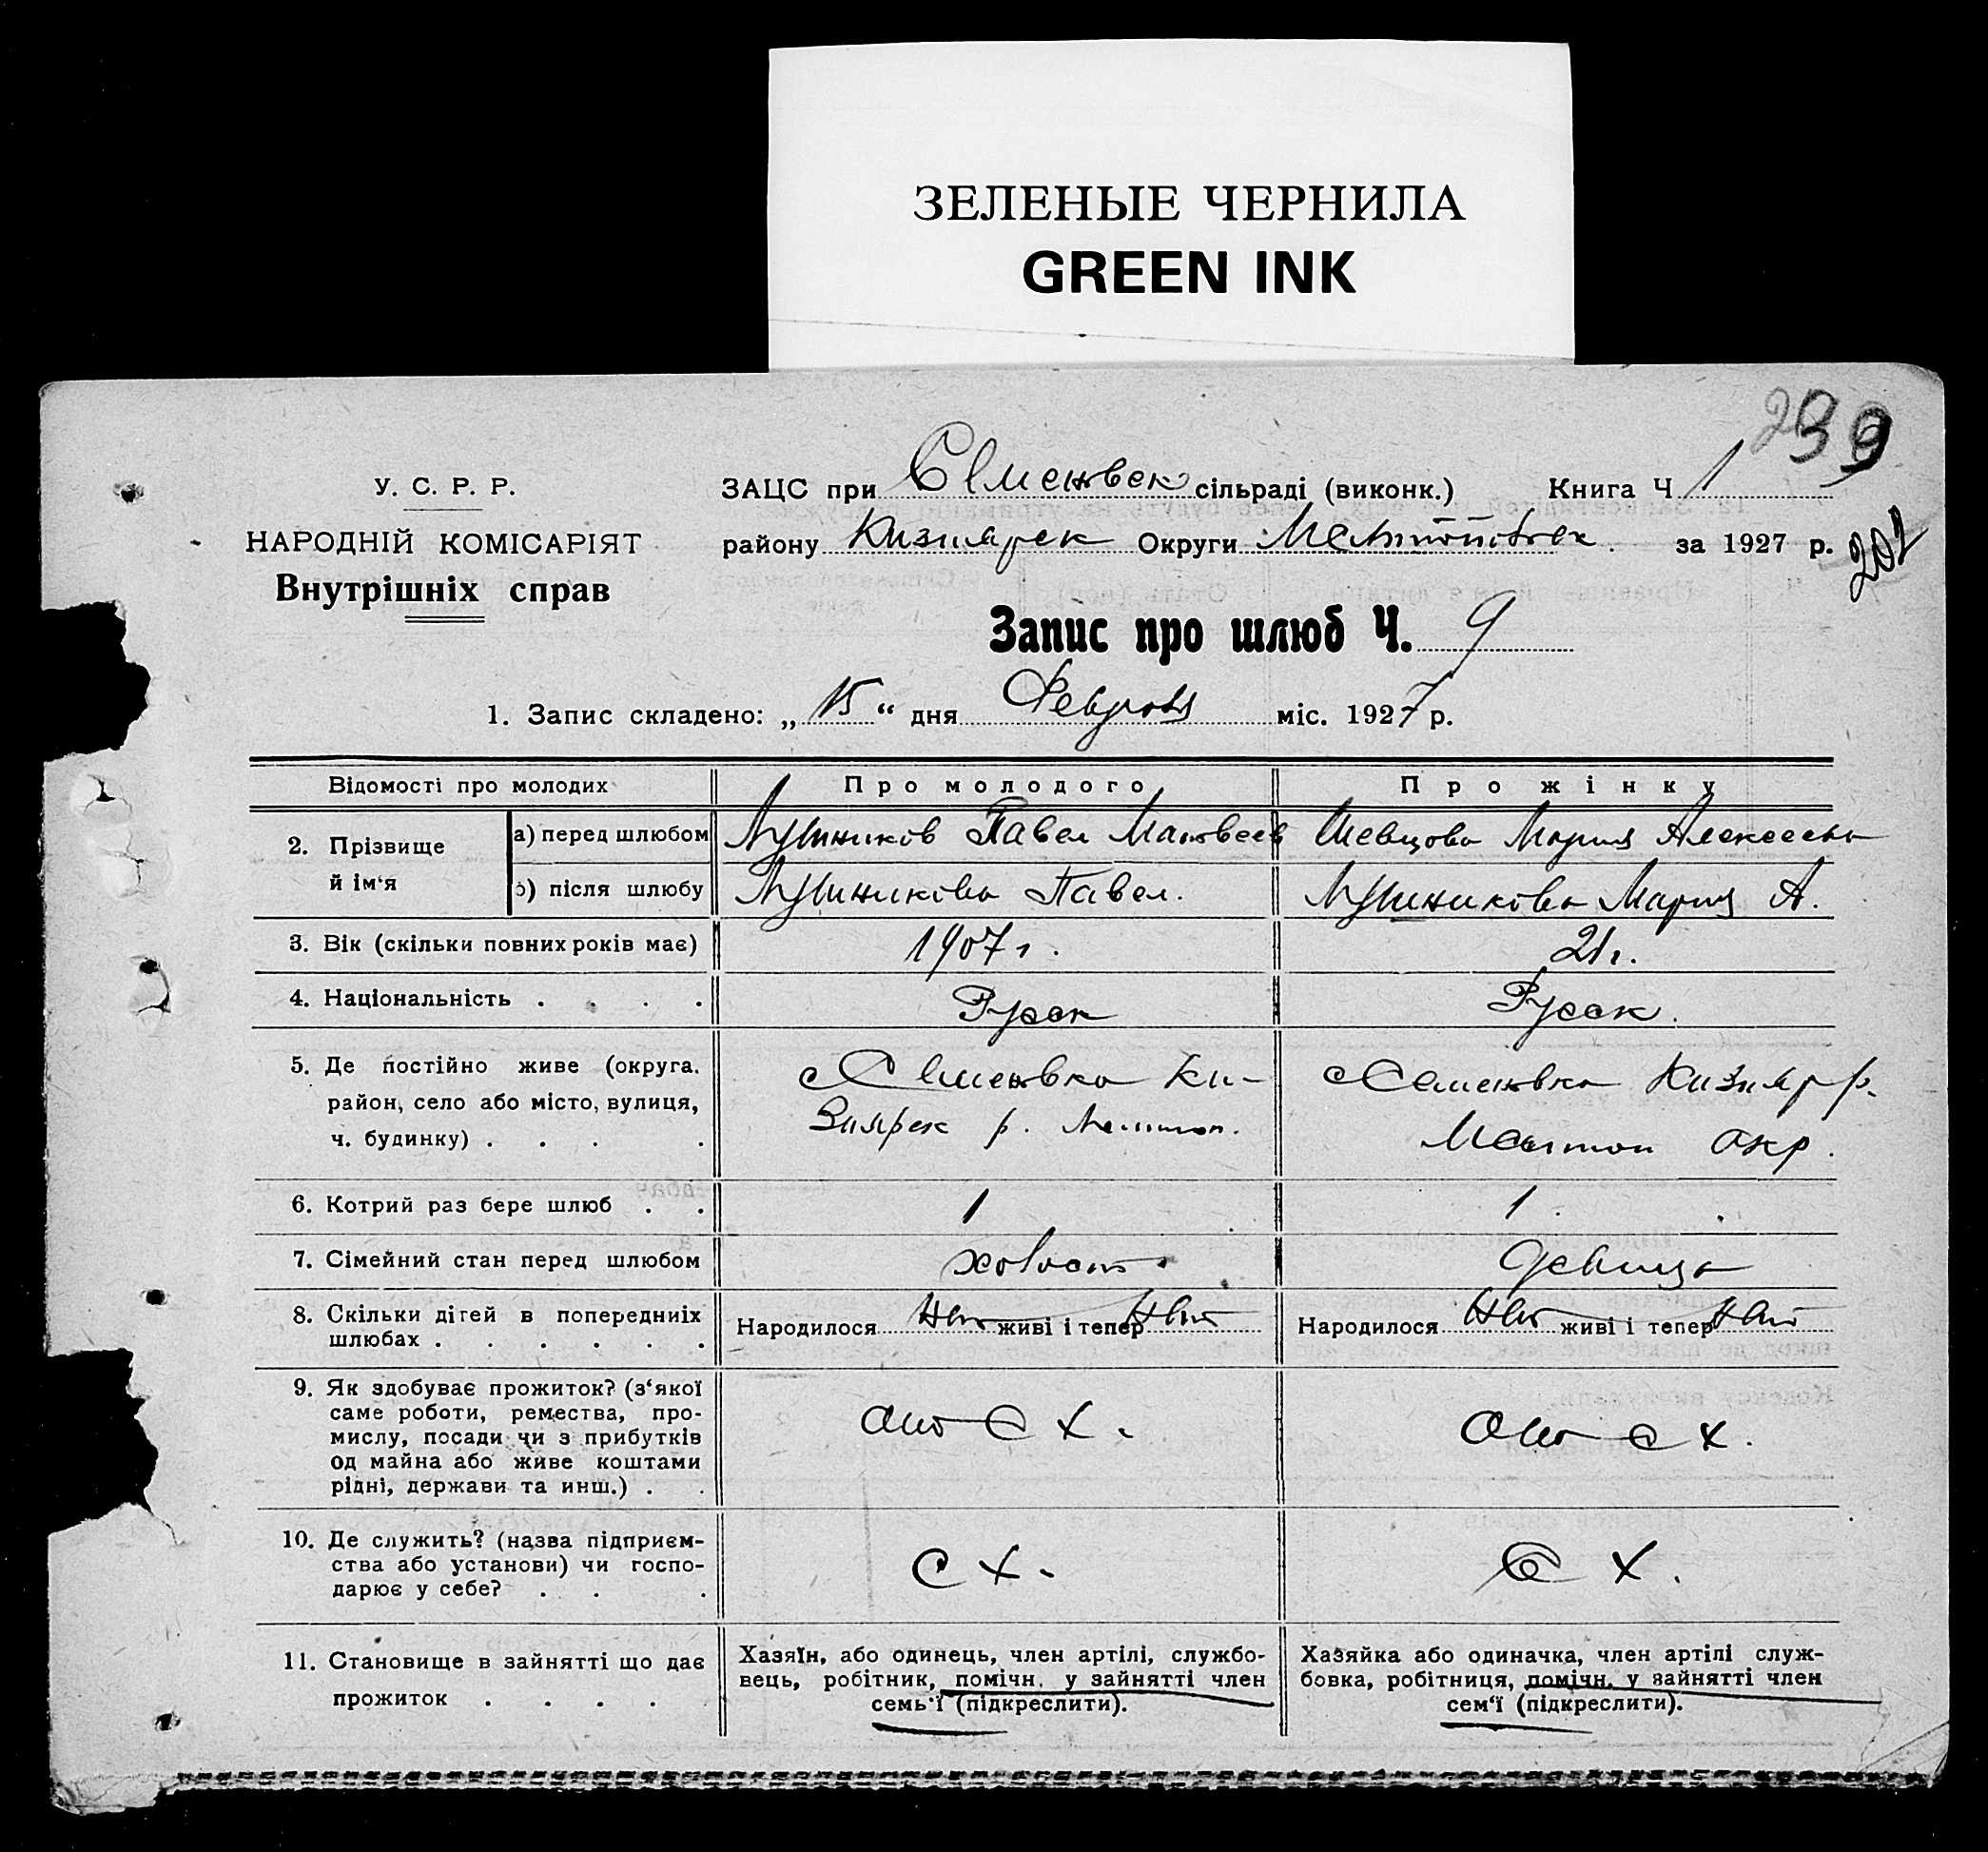 ЗЕЛЕНЫЕ ЧЕРНИЛА
GREEN INK
239
У. С. Р. Р.
НАРОДНІЙ КОМІСАРІЯТ
Внутрішніх справ
ЗАЦС при Семеновск сільраді (виконк.) Книга Ч 1
району Кизиярск Округи Мелитопольск. за 1927 р.
202
Запис про шлюб Ч. 9
1. Запис складено: „ 15 “ дня Февраля міс. 1927 р.
Відомості про молодих Про молодого Про жінку
2. Прізвище й ім‘я
а) перед шлюбом Лушников Павел Матвеев Шевцова Мария Алексеевна
б) після шлюбу Лушникова Павел. Лушникова Мария А.
3. Вік (скільки повних років має) 1907 г. 21 г.
4. Національність . . . . Русск Русск.
5. Де постійно живе (округа, район, село або місто, вулиця, ч. будинку) . . . .
Семеновка Ки-
зиярск р. Мелитоп.
Семеновка Кизияр р.
Мелитоп окр.
6. Котрий раз бере шлюб . . 1 1
7. Сімейний стан перед шлюбом холост девица
8. Скільки дітей в попередниіх шлюбах . . . . . .
Народилося нет живі і тепер нет
Народилося нет живі і тепер нет
9. Як здобуває прожиток? (з‘якої
саме роботи, ремества, про-
мислу, посади чи з прибутків
од майна або живе коштами
рідні, держави та инш.) . .
от с х.
от с х.
10. Де служить? (назва підприєм-
ства або установи) чи госпо-
дарює у себе? . . .
с х.
с х.
11. Становище в зайнятті що дає
прожиток . . . . .
Хазяїн, або одинець, член артілі, службо-
вець, робітник, помічн. у зайнятті член
семь‘ї (підкреслити).
Хазяйка або одиначка, член артілі служ-
бовка, робітниця, помічн. у зайнятті член
сем‘ї (підкреслити).